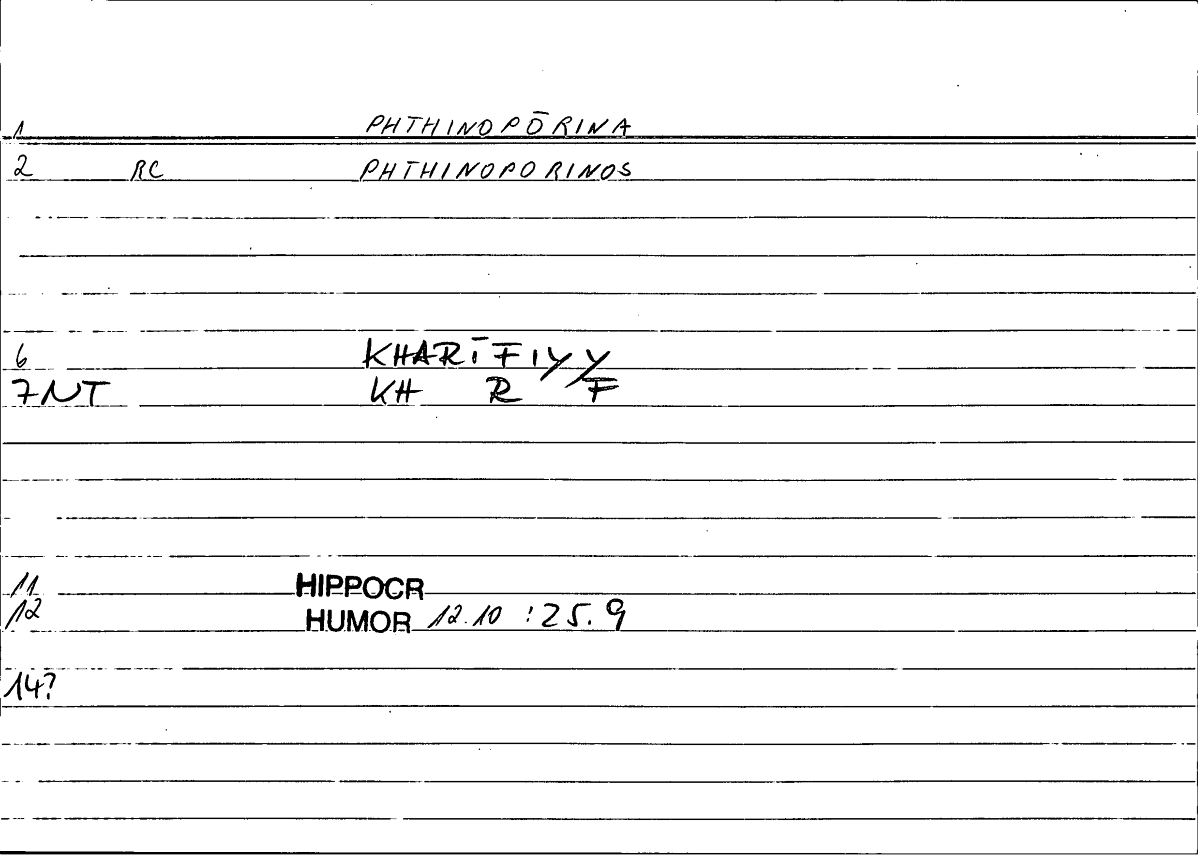 1 PHTHINOPŌRINA
2 RC PHTHINOPORINOS
6 KHARĪFIYY
7NT KH R F
11 HIPPOCR
12 HUMOR 12.10 : 25.9
14?